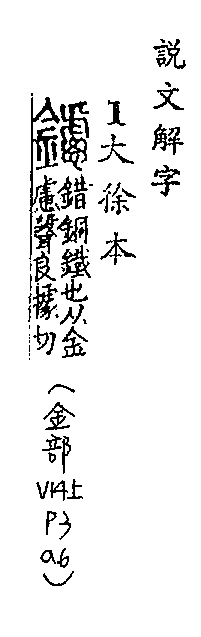 説文解字
1大徐本
鑢錯銅鐵也从金
慮聲良據切
(金部
V14上
P3
a6)